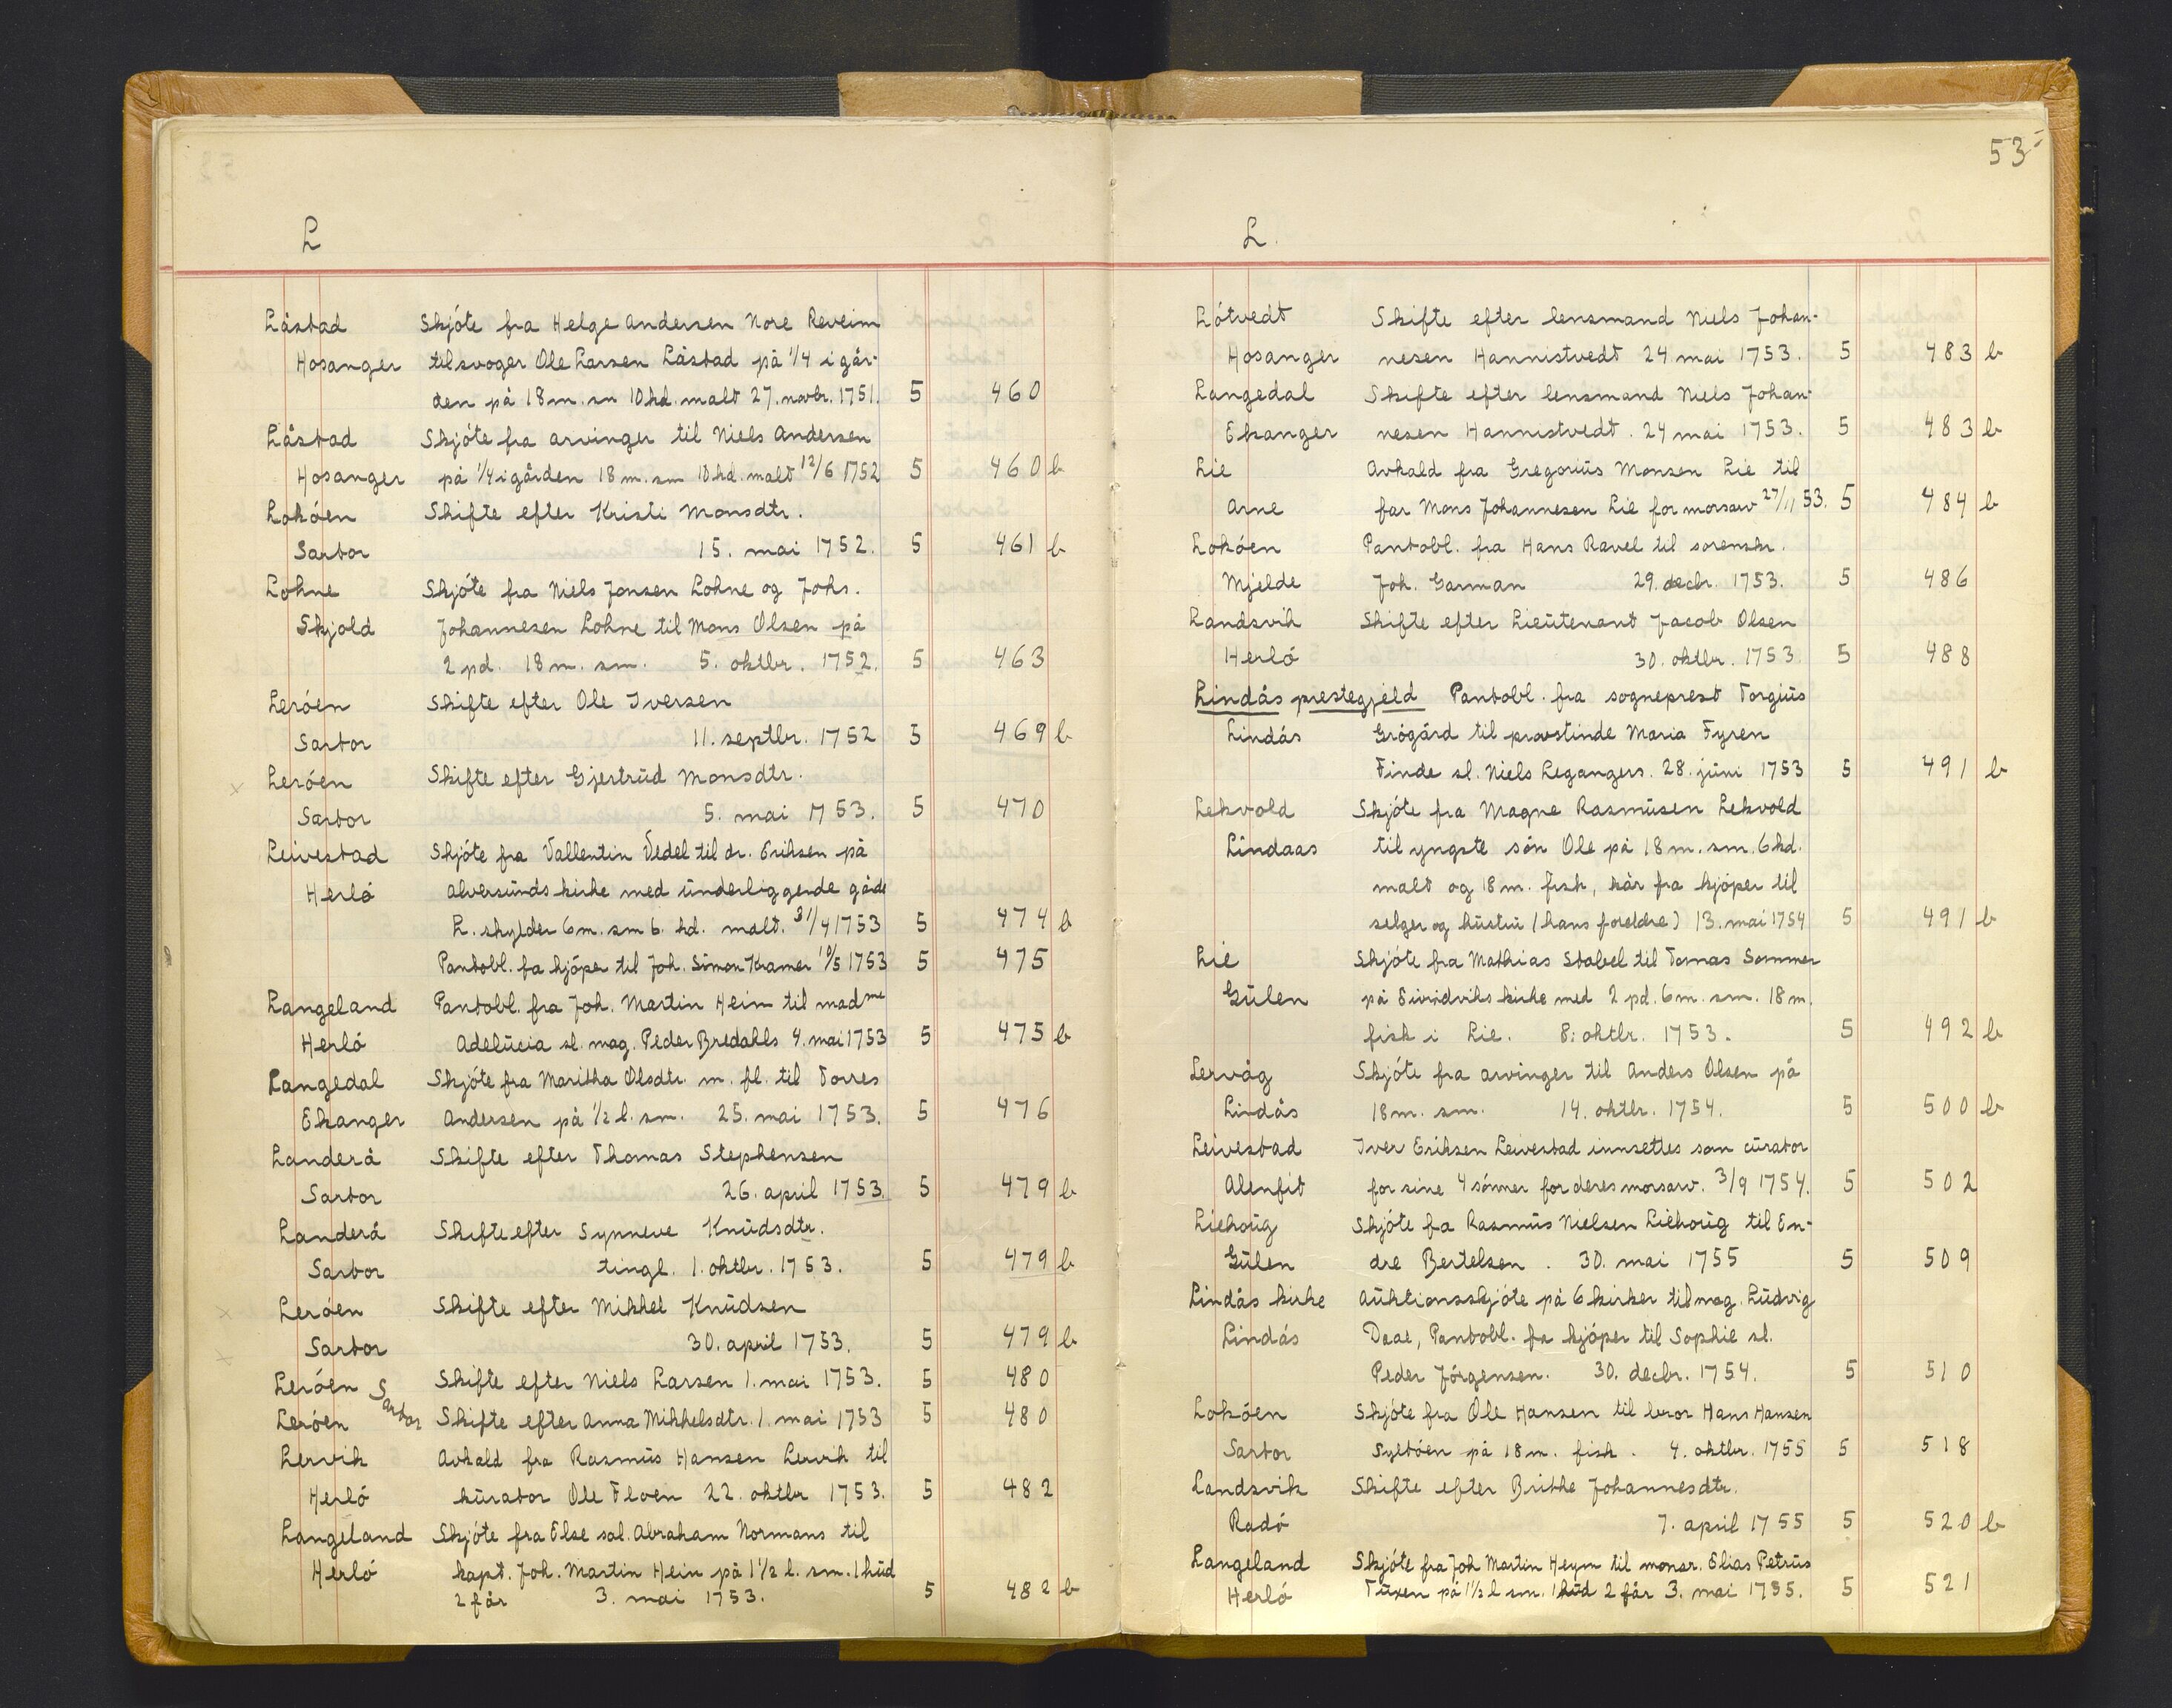 L
Låstad Skjóte fra Helge Andersen Nore Reveim
Hosanger til svoger Ole Larsen Låstad på 1/4 i går-
den på 18 m. sm 10 kd. malt 27. novbr. 1751. 5 460
Låstad Skjóte fra arvinger til Niels Andersen
Hosanger på 1/4 i gården 18 m. sm 10 kd. malt 12/6 1752 5 460 b
Lokóen Skifte efter Kristi Monsdtr.
Sartor 15. mai 1752. 5 461 b
Lohne Skjóte fra Niels Jonsen Lohne og Johs.
Skjold Johannesen Lohne til Mons Olsen på
2 pd. 18 m. sm. 5. oktbr. 1752. 5 463
Leróen Skifte efter Ole Iversen
Sartor 11. septbr. 1752 5 469 b
x Leróen Skifte efter Gjertrud Monsdtr.
Sartor 5. mai 1753. 5 470
Leivestad Skjóte fra Vallentin Vedel til dr. Eriksen på
Herló Alversunds kirke med underliggende gåde
L. skylder 6 m. sm 6. kd. malt. 31/4 1753 5 474 b
Pantobl. fa kjóper til Joh. Simon Kramer 10/5 1753 5 475
Langeland Pantobl. fra Joh. Martin Hein til madme
Herló Adelucia sl. mag. Peder Bredahls 4. mai 1753 5 475 b
Langedal Skjóte fra Maritha Olsdtr. m. fl. til Torres
Ekanger Andersen på 1/2 l. sm. 25. mai 1753. 5 476
Landerå Skifte efter Thomas Stephensen
Sartor 26. april 1753. 5 479 b
Landerå Skifte efter Synneve Knudsdtr.
Sartor tingl. 1. oktbr. 1753. 5 479 b
x Leróen Skifte efter Mikkel Knudsen
x Sartor 30. april 1753. 5 479 b
Leróen Sartor Skifte efter Niels Larsen 1. mai 1753. 5 480
Leróen Skifte efter Anna Mikkelsdtr. 1. mai 1753 5 480
Lervik Avkald fra Rasmus Hansen Lervik til
Herló kurator Ole Floen 22. oktbr 1753. 5 482
Langeland Skjóte fra Else sal. Abraham Normans til
Herló kapt. Joh. Martin Hein på 1 1/2 l. sm. 1 hud
2 får 3. mai 1753. 5 482 b
53
L.
Lótvedt Skifte efter lensmand Niels Johan-
Hosanger nesen Hannistvedt 24. mai 1753. 5 483 b
Langedal Skifte efter lensmand Niels Johan-
Ekanger nesen Hannistvedt. 24 mai 1753. 5 483 b
Lie Avkald fra Gregorius Monsen Lie til
Arne far Mons Johannesen Lie for morsarv 27/11 53. 5 484 b
Lokóen Pantobl. fra Hans Ravel til sorenskr.
Mjelde Joh. Garman 29. decbr. 1753. 5 486
Landsvik Skifte efter Lieutenant Jacob Olsen
Herló 30. oktbr. 1753. 5 488
Lindås prestegjeld Pantobl. fra sogneprest Torgius
Lindås Grógård til provstinde Maria Fyren
Finde sl. Niels Legangers. 28. juni 1753 5 491 b
Lekvold Skjóte fra Magne Rasmusen Lekvold
Lindaas til yngste són Ole på 18 m. sm. 6 kd.
malt og 18 m. fisk, kår fra kjóper til
selger og hustru (hans foreldre) 13. mai 1754 5 491 b
Lie Skjóte fra Mathias Stabel til Tomas Sommer
Gulen på Eivindviks kirke med 2 pd. 6 m. sm. 18 m.
fisk i Lie. 8. oktbr. 1753. 5 492 b
Lervåg Skjóte fra arvinger til Anders Olsen på
Lindås 18 m. sm. 14. oktbr. 1754. 5 500 b
Leivestad Iver Eriksen Leivestad innsettes som curator
Alenfit for sine 4 sónner for deres morsarv. 3/9 1754. 5 502
Liehoug Skjóte fa Rasmus Nielsen Liehoug til En-
Gulen dre Bertelsen. 30. mai 1755 5 509
Lindås kirke Auktionsskjóte på 6 kirker til mag. Ludvig
Lindås Daae, Pantobl. fa kjóper til Sophie sl.
Peder Jórgensen. 30. decbr. 1754. 5 510
Lokóen Skjóte fra Ole Hansen til bror Hans Hansen
Sartor Syltóen på 18 m. fisk. 4. oktbr. 1755 5 518
Landsvik Skifte efter Brithe Johannesdtr.
Radó 7. april 1755 5 520 b
Langeland Skjóte fra Joh Martin Heym til monsr. Elias Petrus
Herló Tuxen på 1 1/2 l sm. 1 hud 2 får 3. mai 1755. 5 521